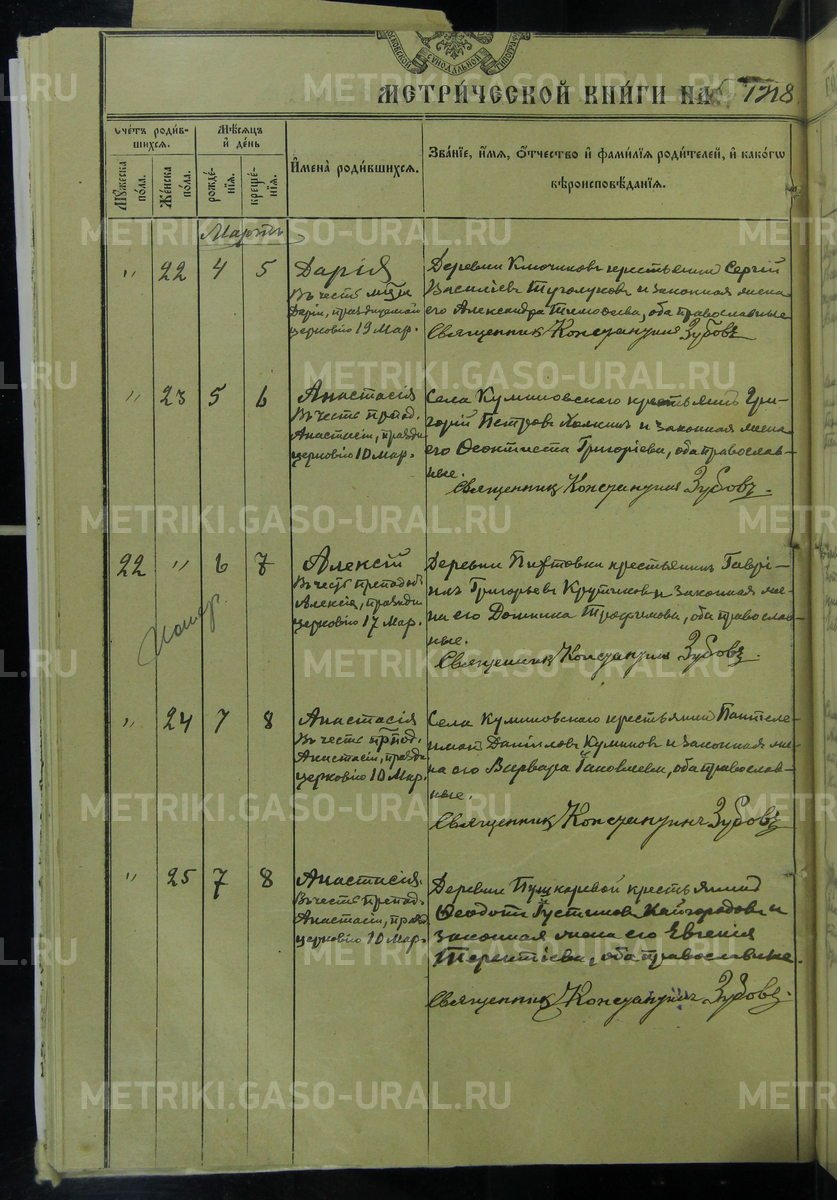 МЕТРИ́ЧЕСКОЙ КНИ́ГИ НА 1918
Счетъ родив-
шихся.
Мѣсяцъ
и день
Мужеска
пола.
Женска
пола.
рожде-
нїя.
креще-
нїя.
Имена родившихся.
Званїе, имя, отчество и фамилїя родителей, и какого
вѣроисповѣданїя.
Мартъ
" 22 4 5
Дарія
Въ честь мцы
Даріи, празднуемой
церковію 19 Мар.
Деревни Ключиковъ крестьянинъ Сергій
Василіевъ и законная жена
его Александра Тимофеева, оба православные
Священникъ Константинъ Зубовъ
" 23 5 6
Анастасія
Въ честь препод.
Анастасіи, праздн.
церковію 10 Мар.
Села крестьянинъ Гри-
горій Петровъ и законная жена
его Ѳеоктиста Григоріева, оба православ-
ные.
Священникъ Константинъ Зубовъ.
22 " 6 7
Алексій
Въ честь преподоб.
Алексія, праздн.
церковію 17 Мар.
Деревни Пихтовки крестьянинъ Гаврі-
илъ Григорьевъ Крутиковъ и законная же-
на его Домника Трофимова, оба православ-
ные.
Священникъ Константинъ Зубовъ.
Помер.
" 24 7 8
Анастасія
Въ честь препод.
Анастасіи, праздн.
церковію 10 Мар.
Села крестьянинъ Пантеле-
имонъ Даніиловъ и законная же-
на его Варвара Іаковлева, оба православ-
ные.
Священникъ Константинъ Зубовъ
" 25 7 8
Анастасія.
Въ честь препод.
Анастасіи, праздн.
церковію 10 Мар.
Деревни Пушкаревой крестьянинъ
Ѳеодотъ Іустиновъ Кайгородовъ и
законная жена его Евгенія
Терентіева, оба православные.
Священникъ Константинъ Зубовъ.
METRIKI.GASO-URAL.RU